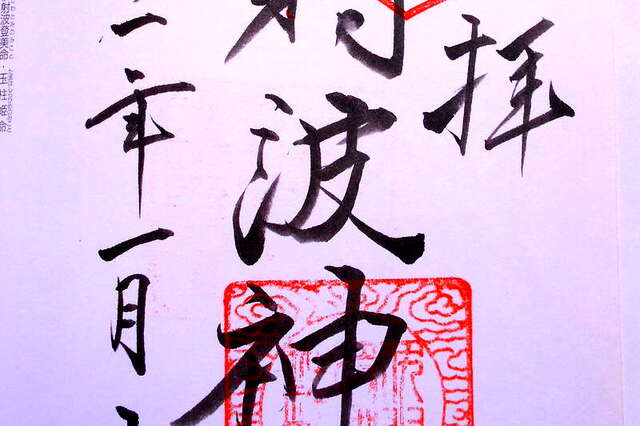 拝
射波神
年一月
射波登美命・玉柱姫命